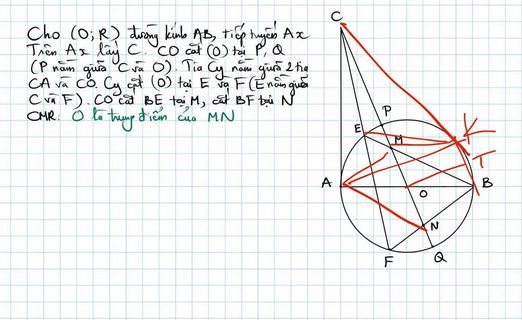 Cho (O; R) đường kính AB, tiếp tuyến Ax
Trên Ax lấy C. CO cắt (O) tại P, Q
(P nằm giữa C và O). Tia Cy nằm giữa 2 tia
CA và CO. Cy cắt (O) tại E và F (E nằm giữa
C và F). CO cắt BE tại M, cắt BF tại N
CMR: O là trung điểm của MN
C
P
E
M
K
T
A
O
B
N
F
Q